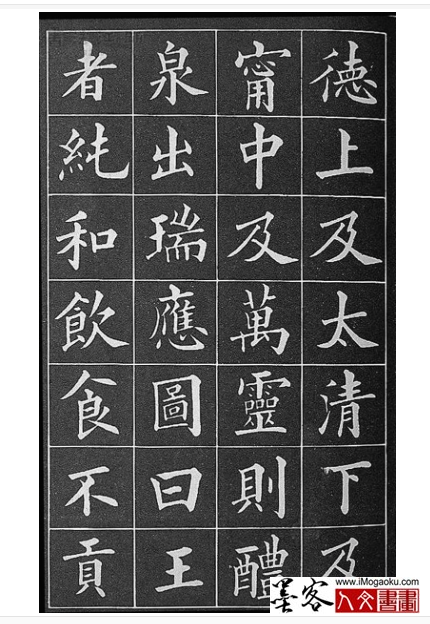 德上及太清下及
甯中及萬靈則醴
泉出瑞應圖曰王
者純和飲食不貢
www.iMogaoku.com
墨客人文書畫